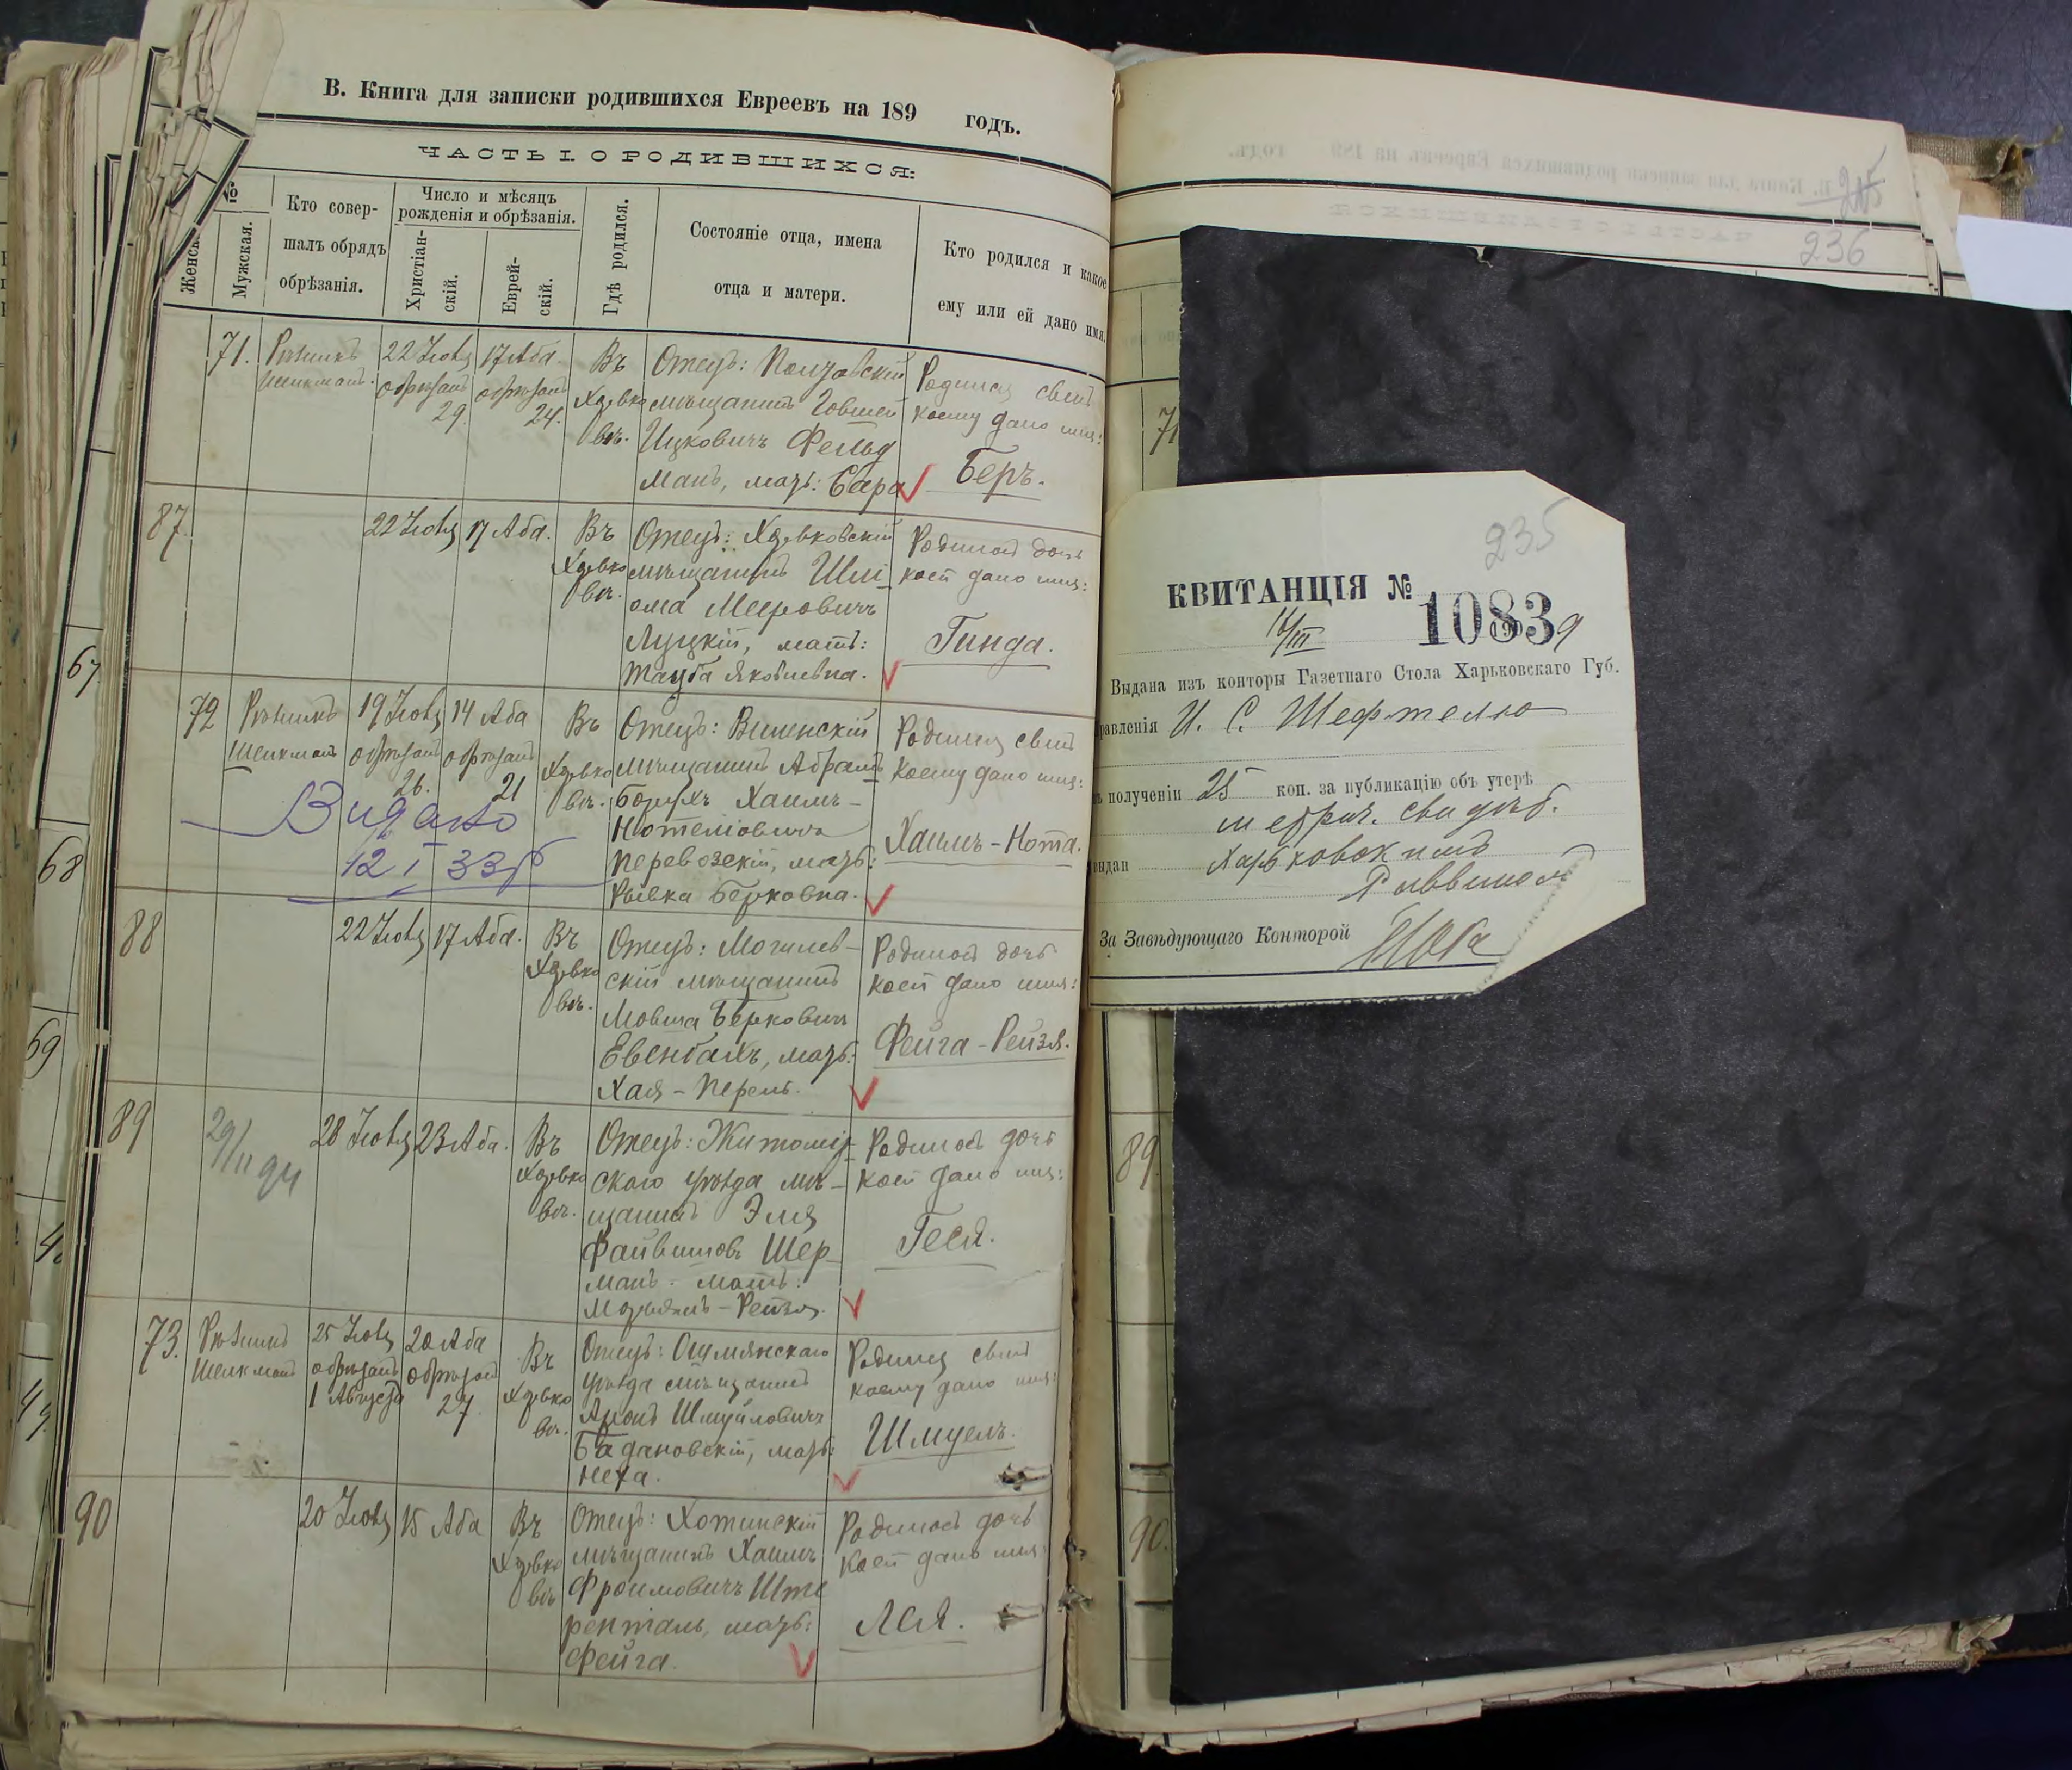 В. Книга для записки родившихся Евреевъ на 189 годъ.
ЧАСТЬ I. О РОДИВШИХСЯ:
№
Женск.
Мужская.
Кто совер-
шалъ обрядъ
обрѣзанія.
Число и мѣсяцъ
рожденія и обрѣзанія.
Христіан-
скій.
Еврей-
скій.
Гдѣ родился.
Состояніе отца, имена
отца и матери.
Кто родился и какое
ему или ей дано имя.
71.
Рѣзникъ
Шейкманъ.
22 Іюля
обрѣзанъ
29.
17 Аба
обрѣзанъ
24.
Въ
Харько
вѣ.
Отецъ: Полтавскій
мѣщанинъ Іовшей
Ицковичъ Фельд
манъ, мать: Сара
Родился сынъ
коему дано имя:
Беръ.
87.
22 Іюля
17 Аба.
Въ
Харько
вѣ.
Отецъ: Харьковскій
мѣщанинъ Шлі-
ома Мееровичъ
Луцкій, мать:
Тауба Яковлевна.
Родилась дочь
коей дано имя:
Гинда.
72
Рѣзникъ
Шейкманъ
19 Іюля
обрѣзанъ
26.
14 Аба
обрѣзанъ
21
Въ
Харько
вѣ.
Отецъ: Виленскій
мѣщанинъ Абрамъ
Борухъ Хаимъ-
Нотеліовичъ
Перевозскій, мать:
Рывка Берковна.
Родился сынъ
коему дано имя:
Хаимъ-Нота.
Видано
12 I 33р
88
22 Іюля
17 Аба.
Въ
Харько
вѣ.
Отецъ: Могилев-
скій мѣщанинъ
Мовша Берковичъ
Евенбахъ, мать:
Хая-Перель.
Родилась дочь
коей дано имя:
Фейга-Рейзя.
89
29/II 94
28 Іюля
23 Аба.
Въ
Харько
вѣ.
Отецъ: Житомір-
скаго уѣзда мѣ-
щанинъ Эля
Файвишовъ Шер-
манъ. мать:
Марьямъ-Рейзя.
Родилась дочь
коей дано имя:
Геся.
73.
Рѣзникъ
Шейкманъ
25 Іюля
обрѣзанъ
1 Августа
20 Аба
обрѣзанъ
27.
Въ
Харько
вѣ.
Отецъ: Ошмянскаго
уѣзда мѣщанинъ
Аронъ Шмуйловичъ
Багдановскій, мать:
Неха.
Родился сынъ
коему дано имя:
Шмуель.
90
20 Іюля
15 Аба
Въ
Харько
вѣ
Отецъ: Хотинскій
мѣщанинъ Хаимъ
Фроимовичъ Ште
ренталь, мать:
Фейга.
Родилась дочь
коей дано имя:
Лея.
67
68
69
236
71
235
КВИТАНЦІЯ № 10839
Выдана изъ конторы Газетнаго Стола Харьковскаго Губ.
равленія И. С. Шефтелю
ъ полученіи 25 коп. за публикацію объ утерѣ
метрич. свидѣт.
выдан Харьковскимъ
Раввиномъ
За Завѣдующаго Конторой
89.
90.